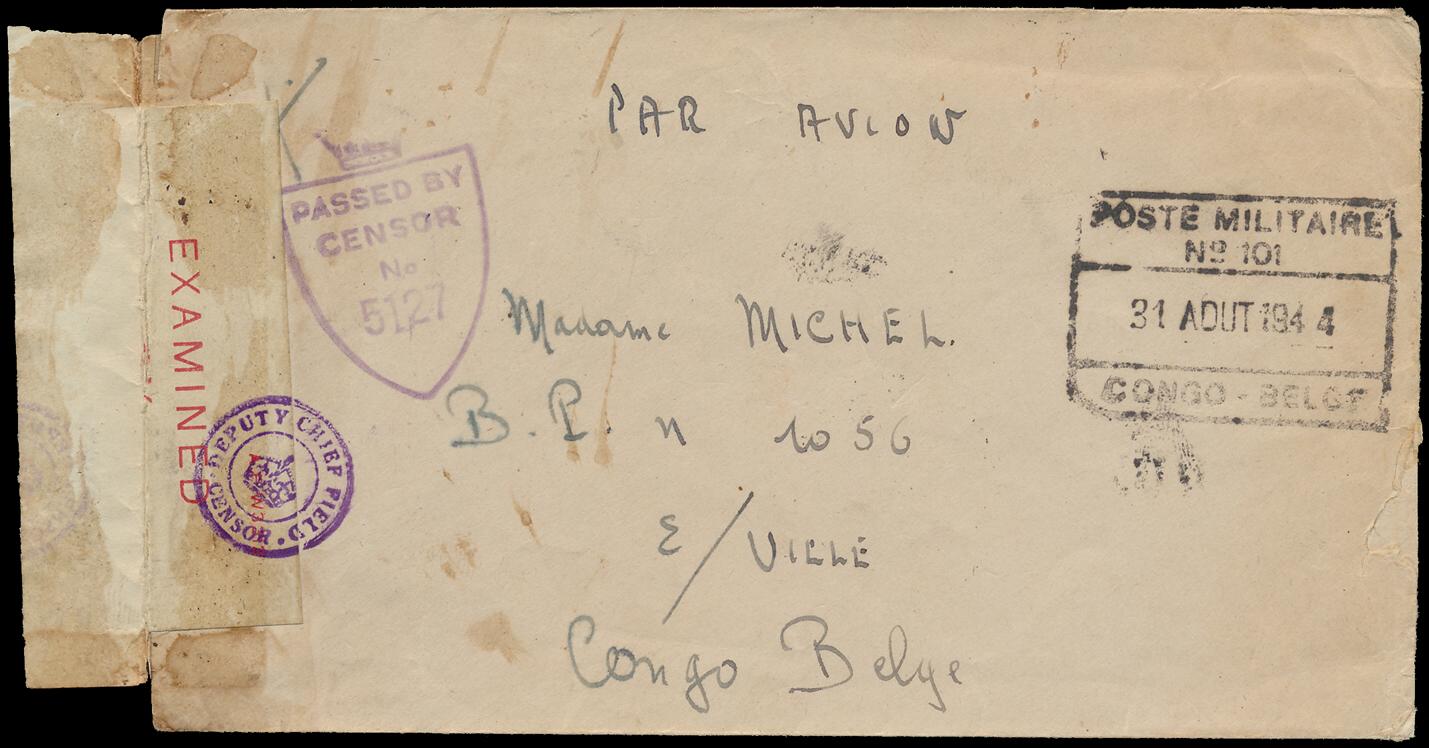 PAR AVION
POSTE MILITAIRE
Nº 101
31 AOUT 1944
CONGO-BELGE
PASSED BY
CENSOR
No
5127
EXAMINED
DEPUTY CHIEF FIELD CENSOR
Madame MICHEL.
B.P. n 1056
E/VILLE
Congo Belge